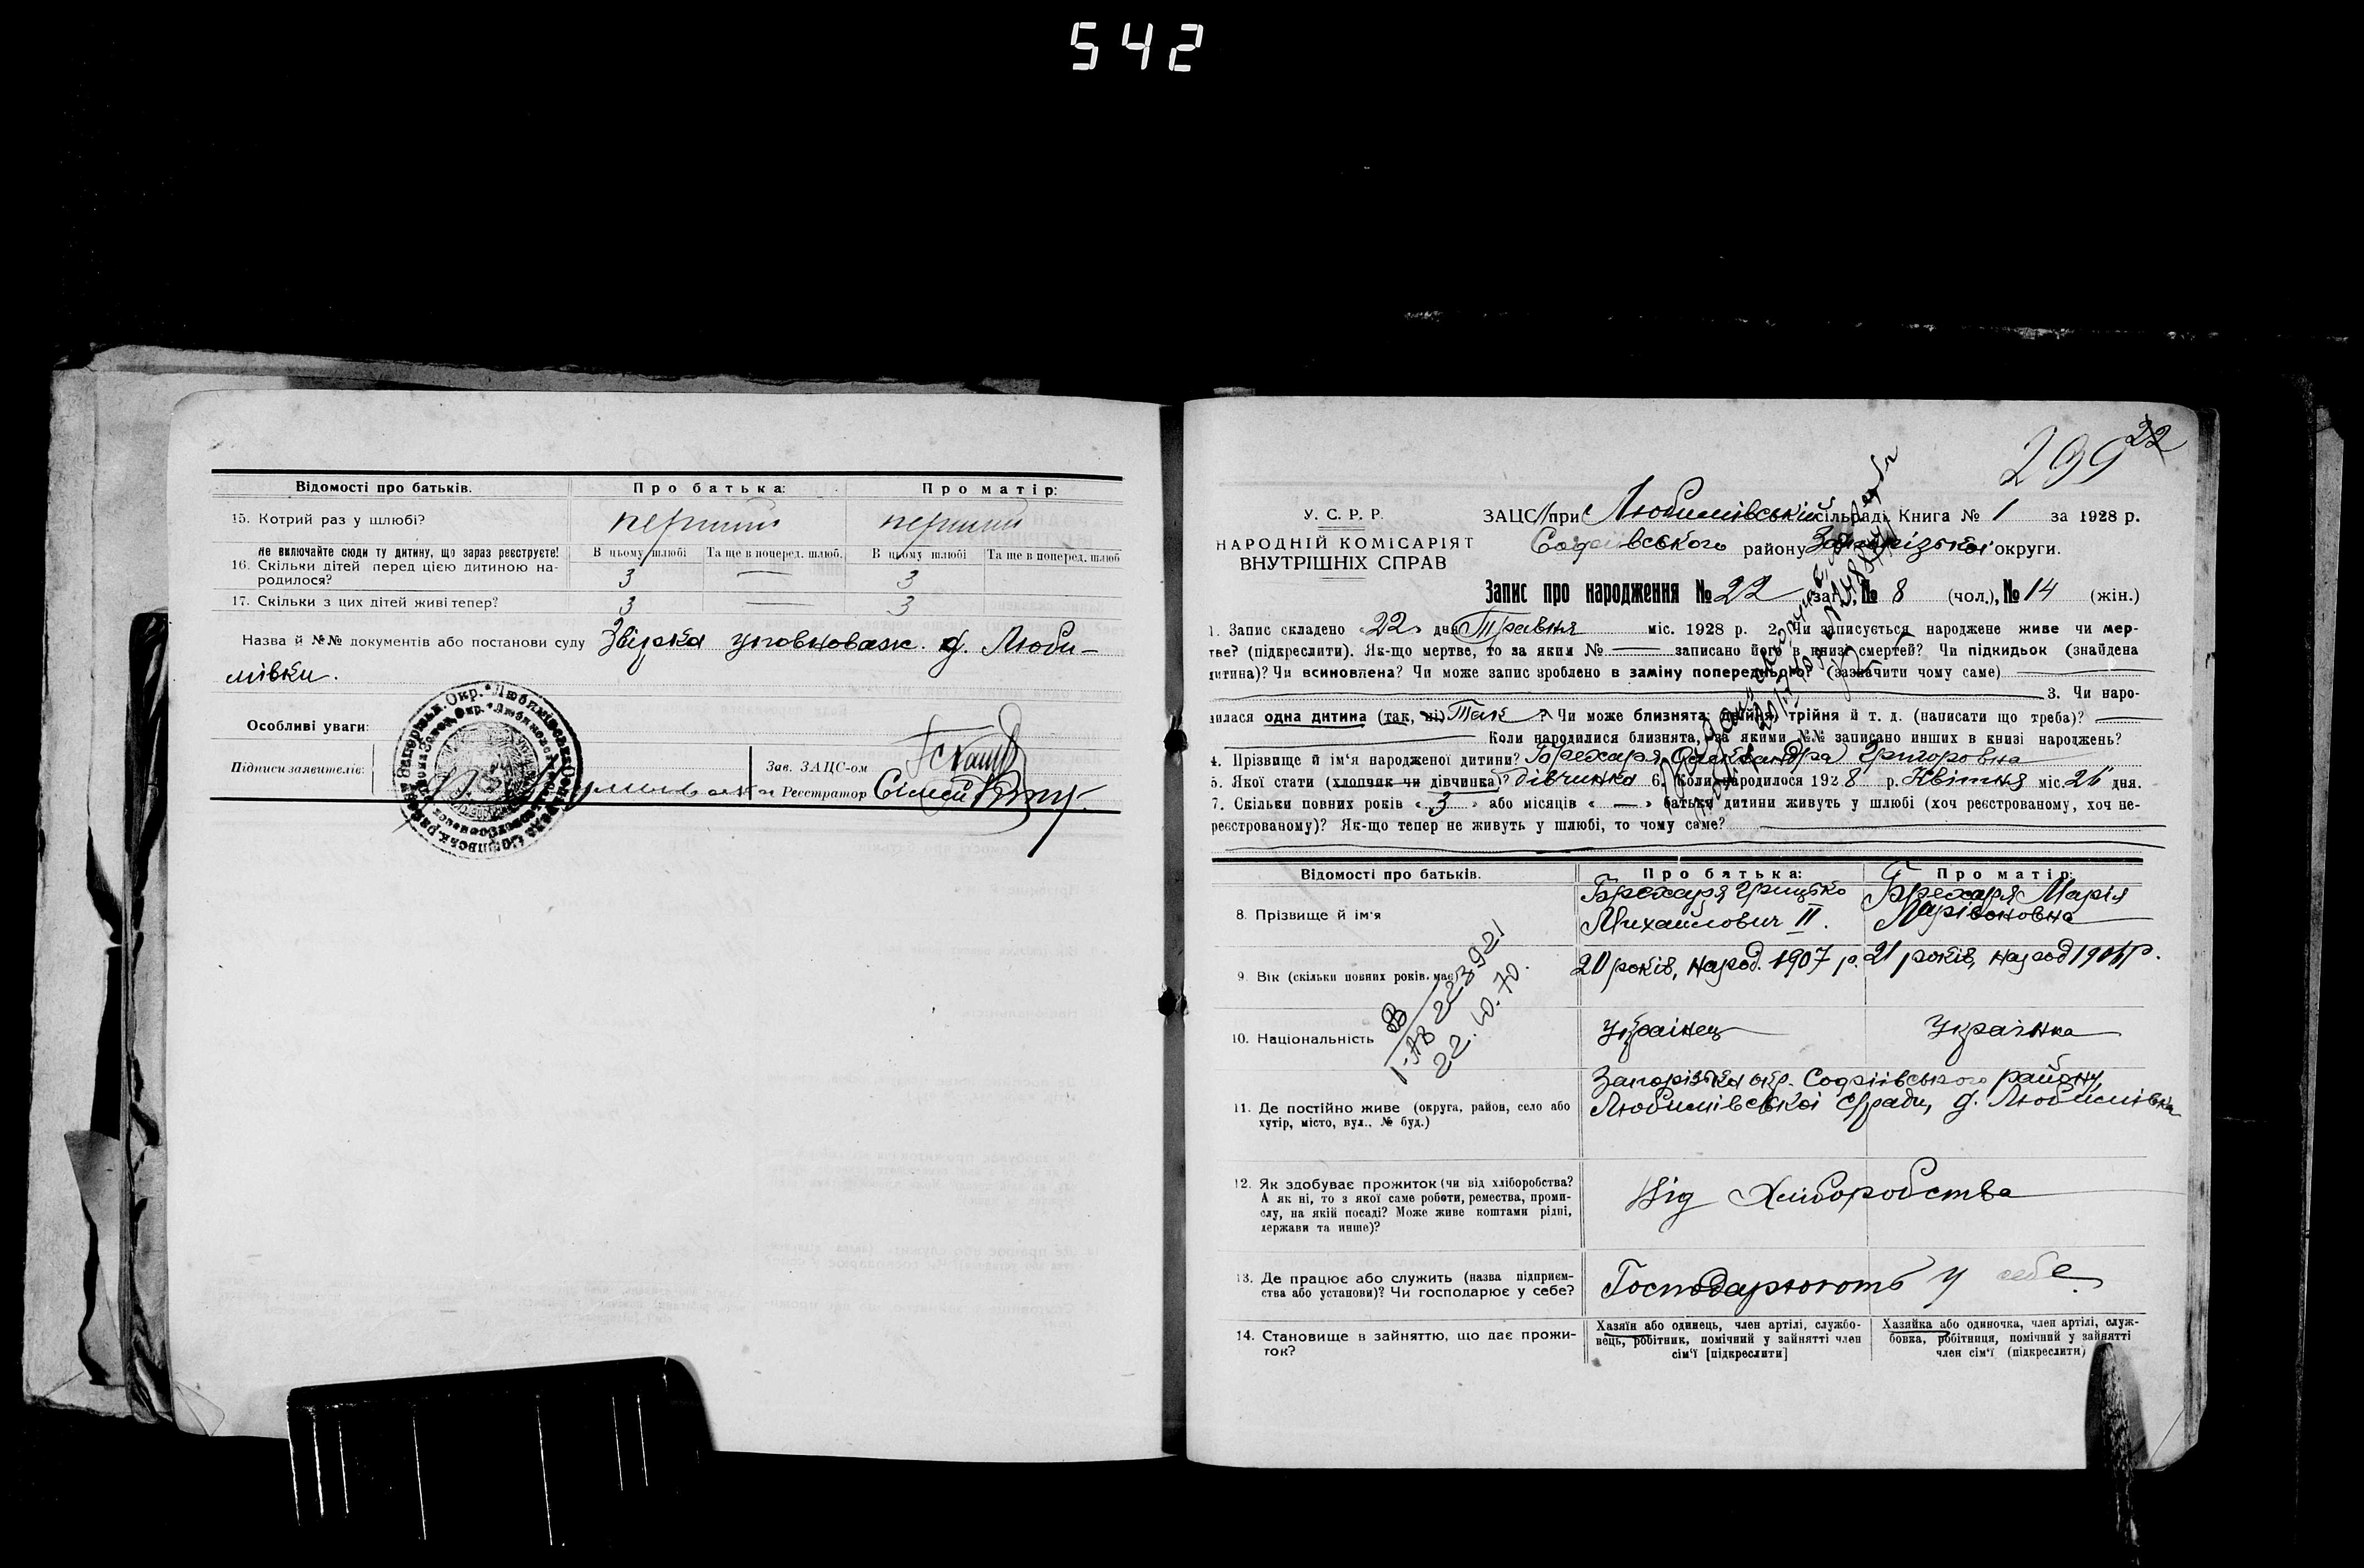 542
Відомості про батьків. Про батька: Про матір:
15. Котрий раз у шлюбі? перший перший
Не включайте сюди ту дитину, що зараз реєструєте! В цьому шлюбі Та ще в поперед. шлюб. В цьому шлюбі Та ще в поперед. шлюб
16. Скільки дітей перед цією дитиною на-
родилося? 3 — 3
17. Скільки з цих дітей живі тепер? 3 — 3
Назва й №№ документів або постанови суду Звірка уповноваж. д. Люби-
мівки.
Особливі уваги:
Підписи заявителів: Зав. ЗАЦС-ом
Реєстратор
299 22
У. С. Р. Р.
НАРОДНІЙ КОМІСАРІЯТ
ВНУТРІШНІХ СПРАВ
ЗАЦС при Любимівській сільраді Книга № 1 за 1928 р.
Софіївського району Запорізької округи.
Запис про народження № 22 (заг.), № 8 (чол.), № 14 (жін.)
1. Запис складено «22» дня Травня міс. 1928 р. 2. Чи записується народжене живе чи мер-
тве? (підкреслити). Як-що мертве, то за яким № — записано його в книзі смертей? Чи підкидьок (знайдена
дитина)? Чи всиновлена? Чи може запис зроблено в заміну попереднього? (зазначити чому саме)
3. Чи наро-
дилася одна дитина (так, ні) Так ? Чи може близнята: двійня, трійня й т. д. (написати що треба)? —
Коли народилися близнята, за якими №№ записано инших в книзі народжень?
4. Прізвище й ім'я народженої дитини? Брехаря Олександра Григоровна
5. Якої статі (хлопчик чи дівчинка)? дівчинка 6. Коли народилося 1928 р. Квітня міс. 26 дня.
7. Скільки повних років «3» або місяців «—» батьки дитини живуть у шлюбі (хоч реєстрованому, хоч не-
реєстрованому)? Як-що тепер не живуть у шлюбі, то чому саме?
Відомості про батьків. Про батька: Про матір:
8. Прізвище й ім'я Брехаря Грицько Брехаря Марія
Михайлович II. Ларівоновна
9. Вік (скільки повних років має) 20 років, народ. 1907 р. 21 років, народ
223921
22.10.70.
10. Національність Українець Українка
Запорізька окр. Софіївського району
11. Де постійно живе (округа, район, село або Любимівської с/ради, д. Любимівка
хутір, місто, вул., № буд.)
12. Як здобуває прожиток (чи від хліборобства?
А як ні, то з якої саме роботи, ремества, проми-
слу, на якій посаді? Може живе коштами рідні,
держави та инше)? Від Хліборобства
13. Де працює або служить (назва підприєм-
ства або установи)? Чи господарює у себе? Господарюють у себе.
14. Становище в зайняттю, що дає прожи-
ток?
Хазяїн або одинець, член артілі, службо-
вець, робітник, помічний у зайнятті член
сім'ї [підкреслити]
Хазяйка або одиночка, член артілі, служ-
бовка, робітниця, помічний у зайнятті
член сім'ї (підкреслити)